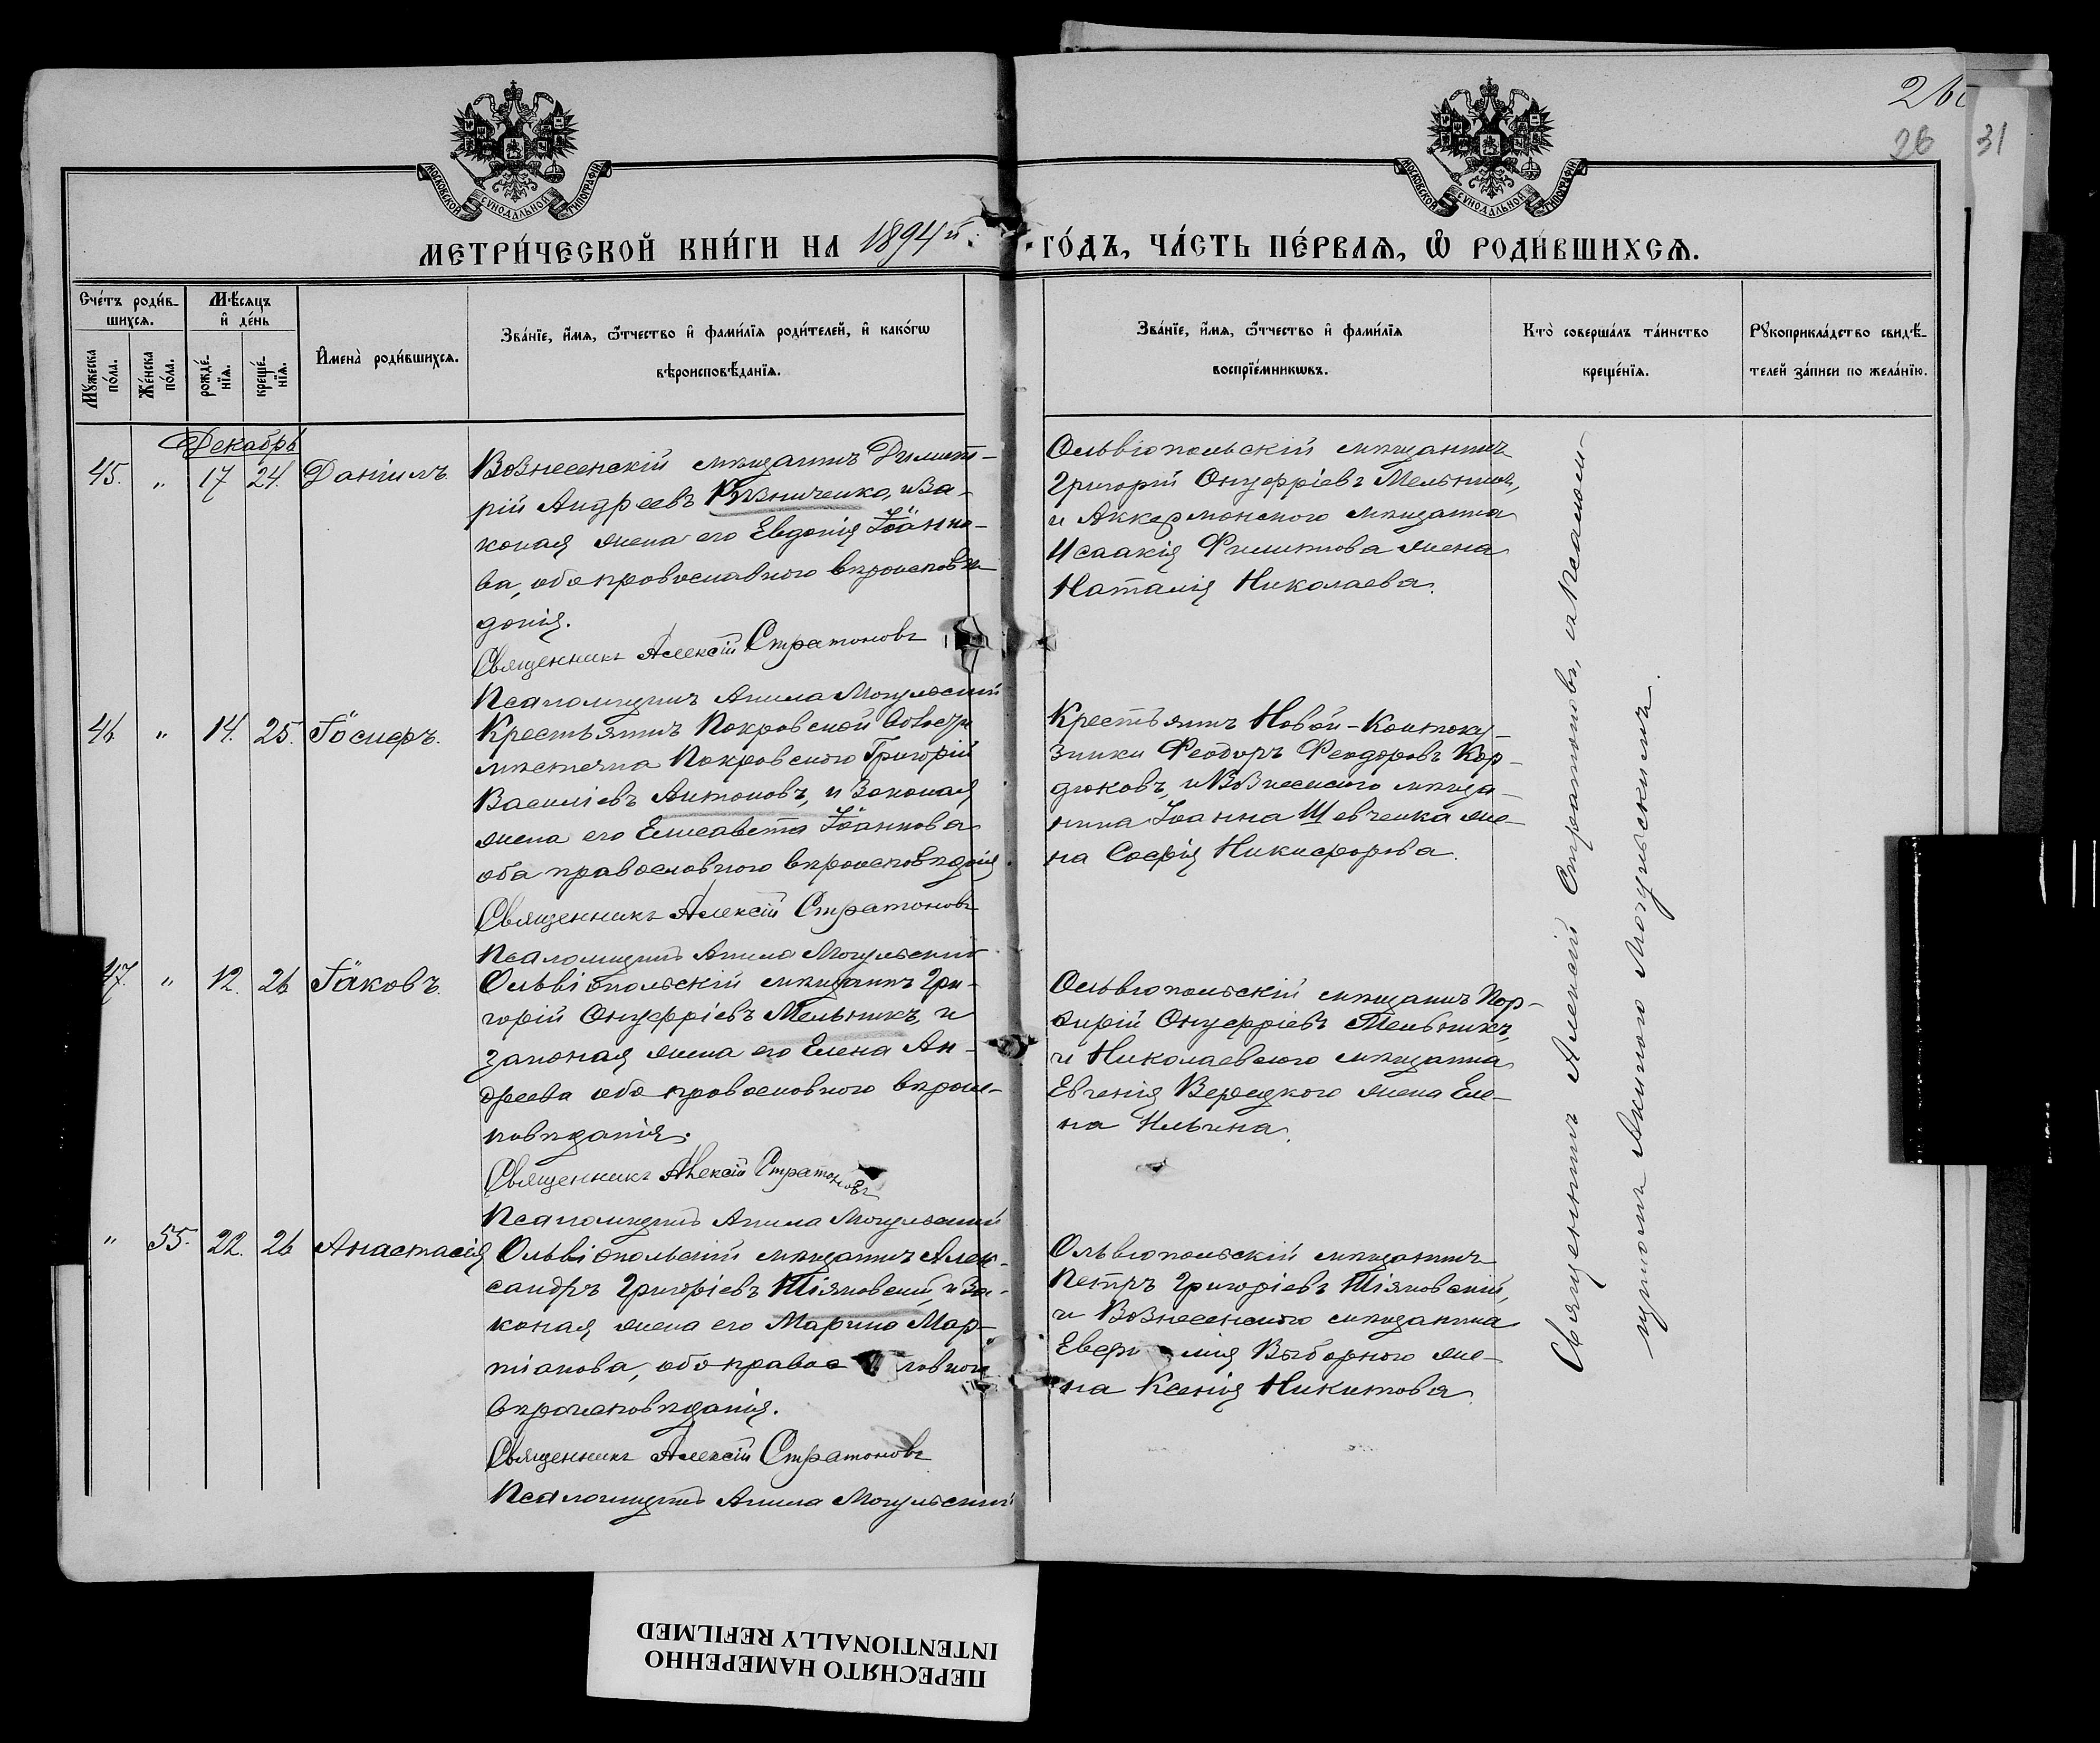 260
26
31
МОСКОВСКОЙ СУНОДАЛЬНОЙ ТИПОГРАФІИ
МОСКОВСКОЙ СУНОДАЛЬНОЙ ТИПОГРАФІИ
МЕТРИ́ЧЕСКОЙ КНИ́ГИ НА 1894й. ГО́ДЪ, ЧА́СТЬ ПЕ́РВАЯ, Ѡ РОДИ́ВШИХСЯ.
Сче́тъ роди́в-
шихся.
Му́жеска по́ла.
Же́нска по́ла.
Мѣ́сяцъ
и҆ де́нь
рожде́-
нїя.
креще́-
нїя.
И҆мена̀ роди́вшихся.
Зва́нїе, и҆́мя, ѻ҆́тчество и҆ фами́лїя роди́телей, и҆ како́гѡ
вѣроисповѣ́данїя.
Зва́нїе, и҆́мя, ѻ҆́тчество и҆ фами́лїя
воспрїе́мникѡвъ.
Кто̀ соверша́лъ та́инство
креще́нїя.
Рꙋкоприкла́дство свидѣ́-
телей за́писи по жела́нїю.
Декабрь
45. " 17 24. Даніилъ.
Вознесенскій мѣщанинъ Димит-
рій Андреевъ Рѣзниченко, и за-
коная жена его Евдокія Іоанно-
ва, оба православного вѣроисповѣ-
данія.
Священникъ Алексій Стратоновъ
Псаломщикъ Акила Могульский
Ольвіопольскій мѣщанинъ
Григорій Онуфріевъ Мельникъ,
и Аккерманского мѣщанина
Исаакія Филипова жена
Наталія Николаева.
46 " 14. 25. Іосифъ.
Крестьянинъ Покровской волости
мѣстечка Покровского Григорій
Василіевъ Антоновъ, и законая
жена его Елисавета Іоаннова
оба православного вѣроисповѣданія.
Священникъ Алексій Стратоновъ
Псаломщикъ Акила Могульский
Крестьянинъ Новой-Кантоку-
зинки Феодоръ Феодоровъ Кор-
дюковъ, и Вознесенского мѣща-
нина Іоанна Шевченка же-
на Софія Никифорова.
47. " 12. 26 Іаковъ.
Ольвіопольскій мѣщанинъ Гри-
горій Онуфріевъ Мельникъ, и
законая жена его Елена Ан-
дреева оба православного вѣроис-
повѣданія.
Священникъ Алексій Стратоновъ
Псаломщикъ Акила Могульский
Ольвіопольскій мѣщанинъ Пор-
фирій Онуфріевъ Мельникъ,
и Николаевского мѣщанина
Евгенія Верецкого жена Еле-
на Ильина.
" 55. 22. 26 Анастасія
Ольвіопольскій мѣщанинъ Алек-
сандръ Григоріевъ Тіяновский, и за-
коная жена его Марина Мар-
тіанова, оба православного
вѣроисповѣданія.
Священникъ Алексій Стратоновъ
Псаломщикъ Акила Могульский
Ольвіопольскій мѣщанинъ
Петръ Григоріевъ Тіяновскій,
и Вознесенского мѣщанина
Евфимія Выборного же-
на Ксенія Никитова.
Священникъ Алексій Стратоновъ, и Псалом-
щикомъ Акилою Могульскимъ.
ПЕРЕСНЯТО НАМЕРЕННО
INTENTIONALLY REFILMED